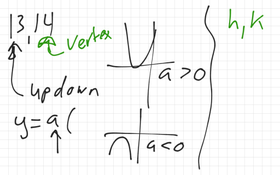 13, 14
vertex
updown
y = a (
a > 0
a < 0
h, k